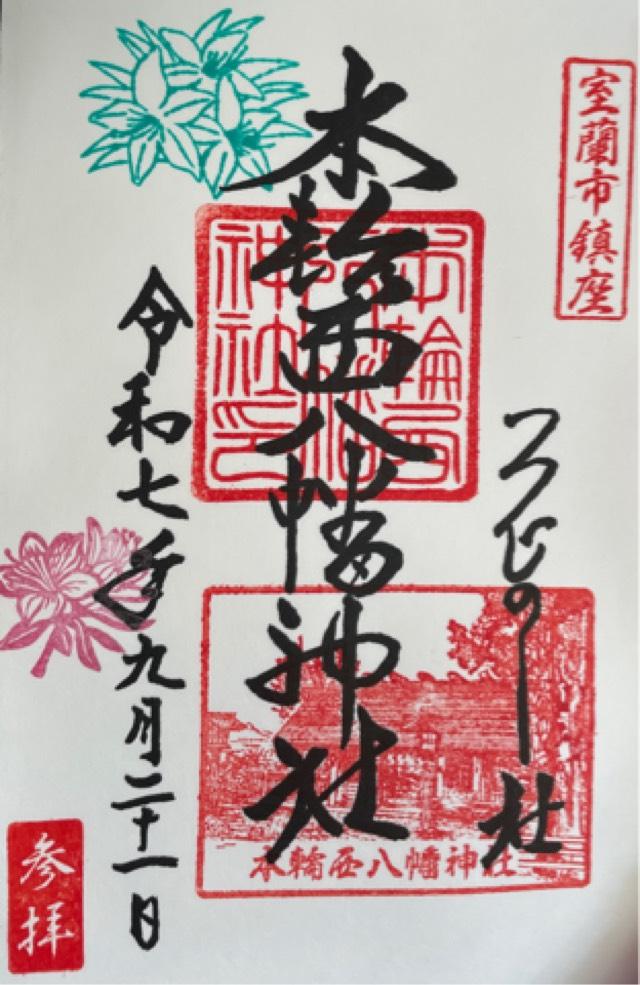 室蘭市鎮座
つつじの社
本輪西八幡神社
本輪西
神社印
本輪西八幡神社
令和七年九月二十一日
参拝